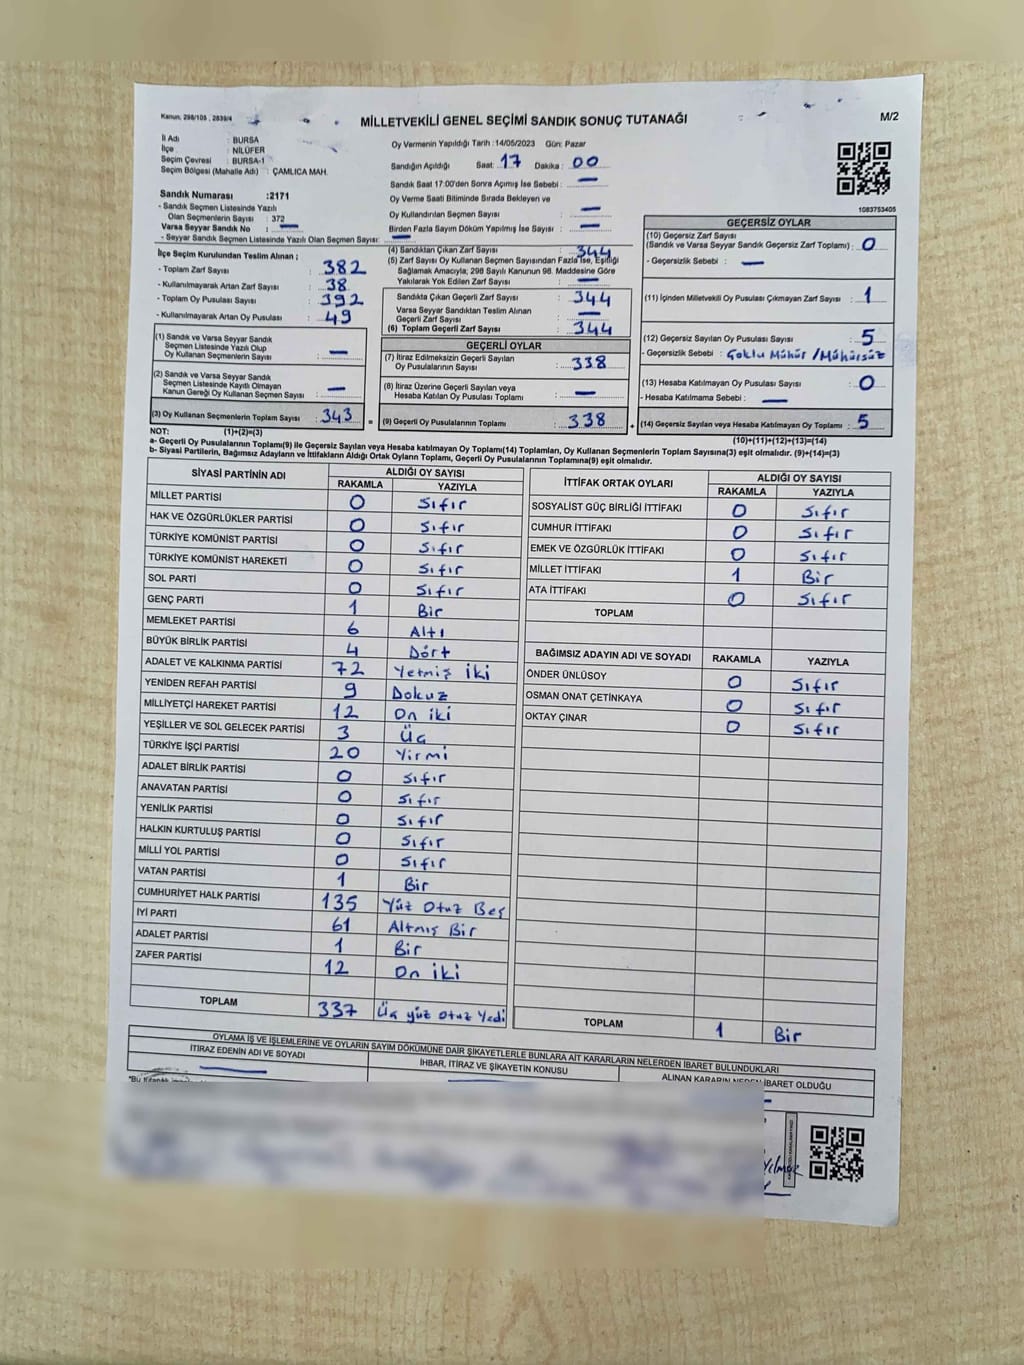 Kanun, 298/105 , 2839/4
MİLLETVEKİLİ GENEL SEÇİMİ SANDIK SONUÇ TUTANAĞI
M/2
İl Adı : BURSA
İlçe : NİLÜFER
Seçim Çevresi : BURSA-1
Seçim Bölgesi (Mahalle Adı) : ÇAMLICA MAH.
Sandık Numarası :2171
- Sandık Seçmen Listesinde Yazılı
Olan Seçmenlerin Sayısı : 372
Varsa Seyyar Sandık No : —
- Seyyar Sandık Seçmen Listesinde Yazılı Olan Seçmen Sayısı: —
Oy Vermenin Yapıldığı Tarih :14/05/2023 Gün: Pazar
Sandığın Açıldığı Saat: 17 Dakika : 00
Sandık Saat 17:00'den Sonra Açımış İse Sebebi : —
Oy Verme Saati Bitiminde Sırada Bekleyen ve
Oy Kullandırılan Seçmen Sayısı : —
Birden Fazla Sayım Döküm Yapılmış İse Sayısı : —
1083753405
İlçe Seçim Kurulundan Teslim Alınan ;
- Toplam Zarf Sayısı : 382
- Kullanılmayarak Artan Zarf Sayısı : 38
- Toplam Oy Pusulası Sayısı : 392
- Kullanılmayarak Artan Oy Pusulası : 49
(1) Sandık ve Varsa Seyyar Sandık
Seçmen Listesinde Yazılı Olup
Oy Kullanan Seçmenlerin Sayısı : —
(2) Sandık ve Varsa Seyyar Sandık
Seçmen Listesinde Kayıtlı Olmayan
Kanun Gereği Oy Kullanan Seçmen Sayısı : —
(3) Oy Kullanan Seçmenlerin Toplam Sayısı : 343 =
(4) Sandıktan Çıkan Zarf Sayısı : 344
(5) Zarf Sayısı Oy Kullanan Seçmen Sayısından Fazla İse, Eşitliği
Sağlamak Amacıyla; 298 Sayılı Kanunun 98. Maddesine Göre
Yakılarak Yok Edilen Zarf Sayısı : —
Sandıkta Çıkan Geçerli Zarf Sayısı : 344
Varsa Seyyar Sandıktan Teslim Alınan
Geçerli Zarf Sayısı : —
(6) Toplam Geçerli Zarf Sayısı : 344
GEÇERLİ OYLAR
(7) İtiraz Edilmeksizin Geçerli Sayılan
Oy Pusulalarının Sayısı : 338
(8) İtiraz Üzerine Geçerli Sayılan veya
Hesaba Katılan Oy Pusulası Toplamı : —
(9) Geçerli Oy Pusulalarının Toplamı : 338 +
GEÇERSİZ OYLAR
(10) Geçersiz Zarf Sayısı
(Sandık ve Varsa Seyyar Sandık Geçersiz Zarf Toplamı) : 0
- Geçersizlik Sebebi : —
(11) İçinden Milletvekili Oy Pusulası Çıkmayan Zarf Sayısı : 1
(12) Geçersiz Sayılan Oy Pusulası Sayısı : 5
- Geçersizlik Sebebi : Çoklu Mühür / Mühürsüz
(13) Hesaba Katılmayan Oy Pusulası Sayısı : 0
- Hesaba Katılmama Sebebi : —
(14) Geçersiz Sayılan veya Hesaba Katılmayan Oy Toplamı : 5
NOT: (1)+(2)=(3)
(10)+(11)+(12)+(13)=(14)
a- Geçerli Oy Pusulalarının Toplamı(9) ile Geçersiz Sayılan veya Hesaba katılmayan Oy Toplamı(14) Toplamları, Oy Kullanan Seçmenlerin Toplam Sayısına(3) eşit olmalıdır. (9)+(14)=(3)
b- Siyasi Partilerin, Bağımsız Adayların ve İttifakların Aldığı Ortak Oyların Toplamı, Geçerli Oy Pusulalarının Toplamına(9) eşit olmalıdır.
SİYASİ PARTİNİN ADI ALDIĞI OY SAYISI
RAKAMLA YAZIYLA
MİLLET PARTİSİ 0 Sıfır
HAK VE ÖZGÜRLÜKLER PARTİSİ 0 Sıfır
TÜRKİYE KOMÜNİST PARTİSİ 0 Sıfır
TÜRKİYE KOMÜNİST HAREKETİ 0 Sıfır
SOL PARTİ 0 Sıfır
GENÇ PARTİ 1 Bir
MEMLEKET PARTİSİ 6 Altı
BÜYÜK BİRLİK PARTİSİ 4 Dört
ADALET VE KALKINMA PARTİSİ 72 Yetmiş iki
YENİDEN REFAH PARTİSİ 9 Dokuz
MİLLİYETÇİ HAREKET PARTİSİ 12 On iki
YEŞİLLER VE SOL GELECEK PARTİSİ 3 Üç
TÜRKİYE İŞÇİ PARTİSİ 20 Yirmi
ADALET BİRLİK PARTİSİ 0 Sıfır
ANAVATAN PARTİSİ 0 Sıfır
YENİLİK PARTİSİ 0 Sıfır
HALKIN KURTULUŞ PARTİSİ 0 Sıfır
MİLLİ YOL PARTİSİ 0 Sıfır
VATAN PARTİSİ 1 Bir
CUMHURİYET HALK PARTİSİ 135 Yüz Otuz Beş
İYİ PARTİ 61 Altmış Bir
ADALET PARTİSİ 1 Bir
ZAFER PARTİSİ 12 On iki
TOPLAM 337 Üç yüz otuz Yedi
İTTİFAK ORTAK OYLARI ALDIĞI OY SAYISI
RAKAMLA YAZIYLA
SOSYALİST GÜÇ BİRLİĞİ İTTİFAKI 0 Sıfır
CUMHUR İTTİFAKI 0 Sıfır
EMEK VE ÖZGÜRLÜK İTTİFAKI 0 Sıfır
MİLLET İTTİFAKI 1 Bir
ATA İTTİFAKI 0 Sıfır
TOPLAM
BAĞIMSIZ ADAYIN ADI VE SOYADI RAKAMLA YAZIYLA
ÖNDER ÜNLÜSOY 0 Sıfır
OSMAN ONAT ÇETİNKAYA 0 Sıfır
OKTAY ÇINAR 0 Sıfır
TOPLAM 1 Bir
OYLAMA İŞ VE İŞLEMLERİNE VE OYLARIN SAYIM DÖKÜMÜNE DAİR ŞİKAYETLERLE BUNLARA AİT KARARLARIN NELERDEN İBARET BULUNDUKLARI
İTİRAZ EDENİN ADI VE SOYADI İHBAR, İTİRAZ VE ŞİKAYETİN KONUSU ALINAN KARARIN NEDEN İBARET OLDUĞU